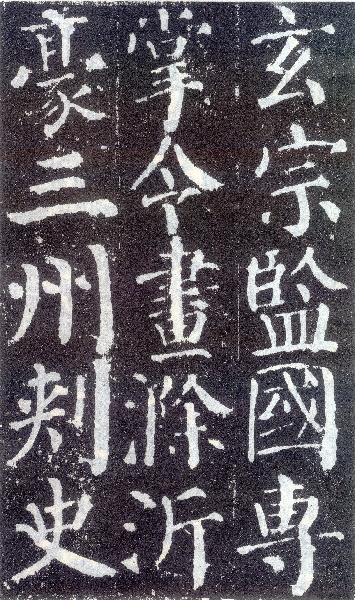 玄宗監國專
掌令畫滁沂
豪三州刾史